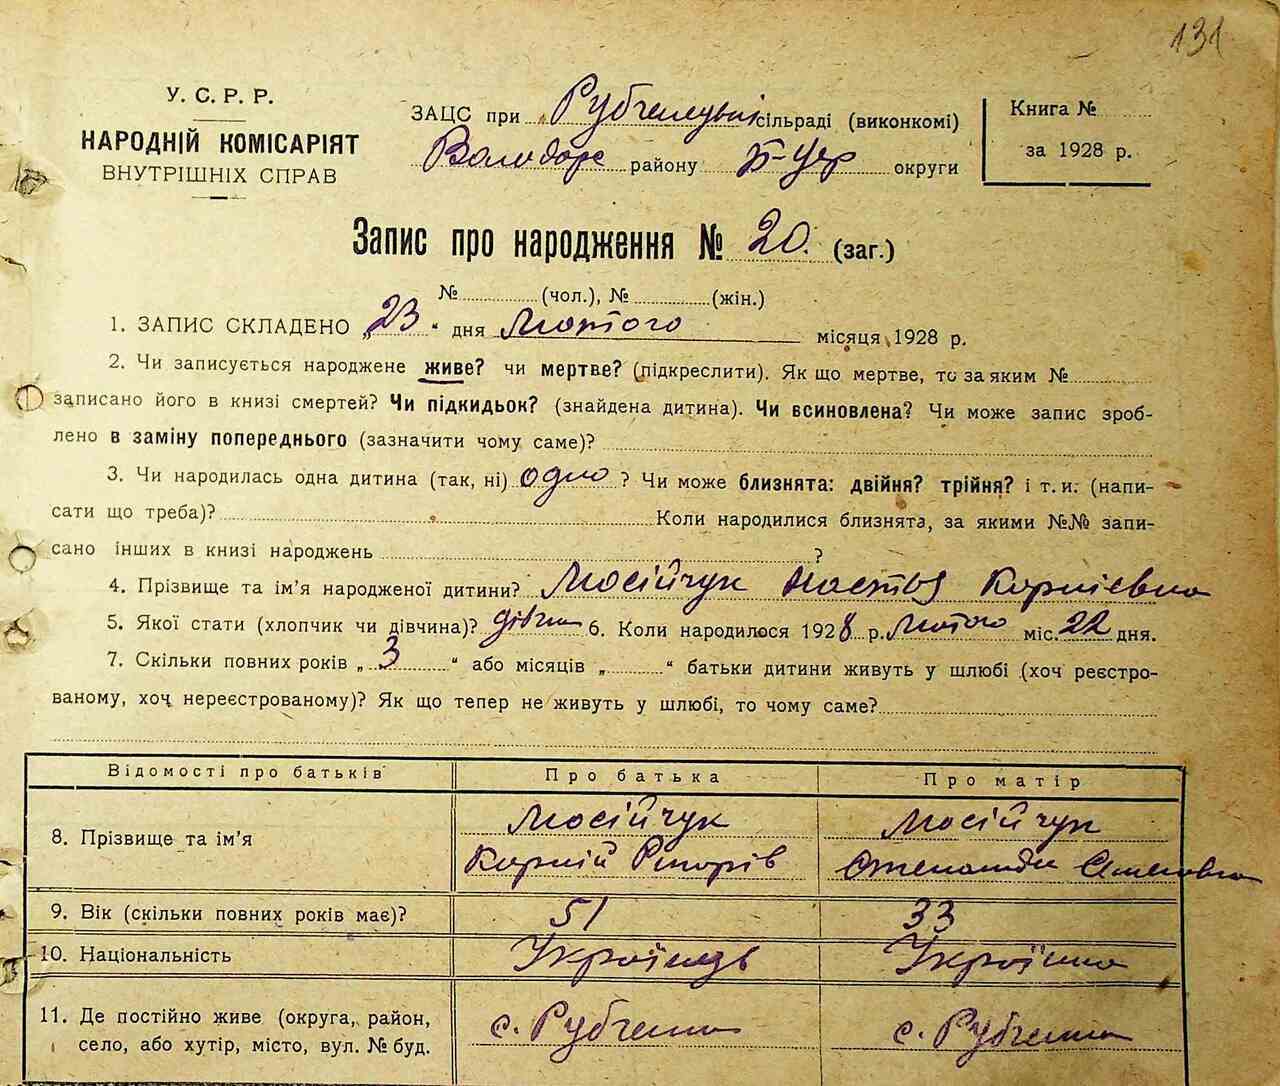 131
У. С. Р. Р.
НАРОДНІЙ КОМІСАРІЯТ
ВНУТРІШНІХ СПРАВ
ЗАЦС при сільраді (виконкомі)
Володарс району Б-Цер округи
Книга №
за 1928 р.
Запис про народження № 20. (заг.)
№ (чол.), № (жін.)
1. ЗАПИС СКЛАДЕНО „23“ дня Лютого місяця 1928 р.
2. Чи записується народжене живе? чи мертве? (підкреслити). Як що мертве, то за яким №
записано його в книзі смертей? Чи підкидьок? (знайдена дитина). Чи всиновлена? Чи може запис зроб-
лено в заміну попереднього (зазначити чому саме)?
3. Чи народилась одна дитина (так, ні) одно ? Чи може близнята: двійня? трійня? і т. и. (напи-
сати що треба)? Коли народилися близнята, за якими №№ запи-
сано інших в книзі народжень ?
4. Прізвище та ім'я народженої дитини? Мосійчук Настя Корніевна
5. Якої стати (хлопчик чи дівчина)? дівчин 6. Коли народилося 1928 р. Лютого міс. 22 дня.
7. Скільки повних років „3“ або місяців „ “ батьки дитини живуть у шлюбі (хоч реєстро-
ваному, хоч нереєстрованому)? Як що тепер не живуть у шлюбі, то чому саме?
Відомості про батьків Про батька Про матір
8. Прізвище та ім'я Мосійчук Мосійчук
Корній
9. Вік (скільки повних років має)? 51 33
10. Національність Українець Українка
11. Де постійно живе (округа, район, с. Рубченки с. Рубченки
село, або хутір, місто, вул. № буд.